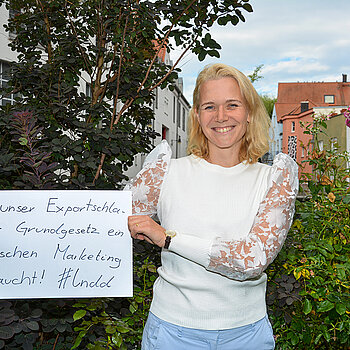 unser Exportschla
Grundgesetz ein
schen Marketing
aucht! #lndd